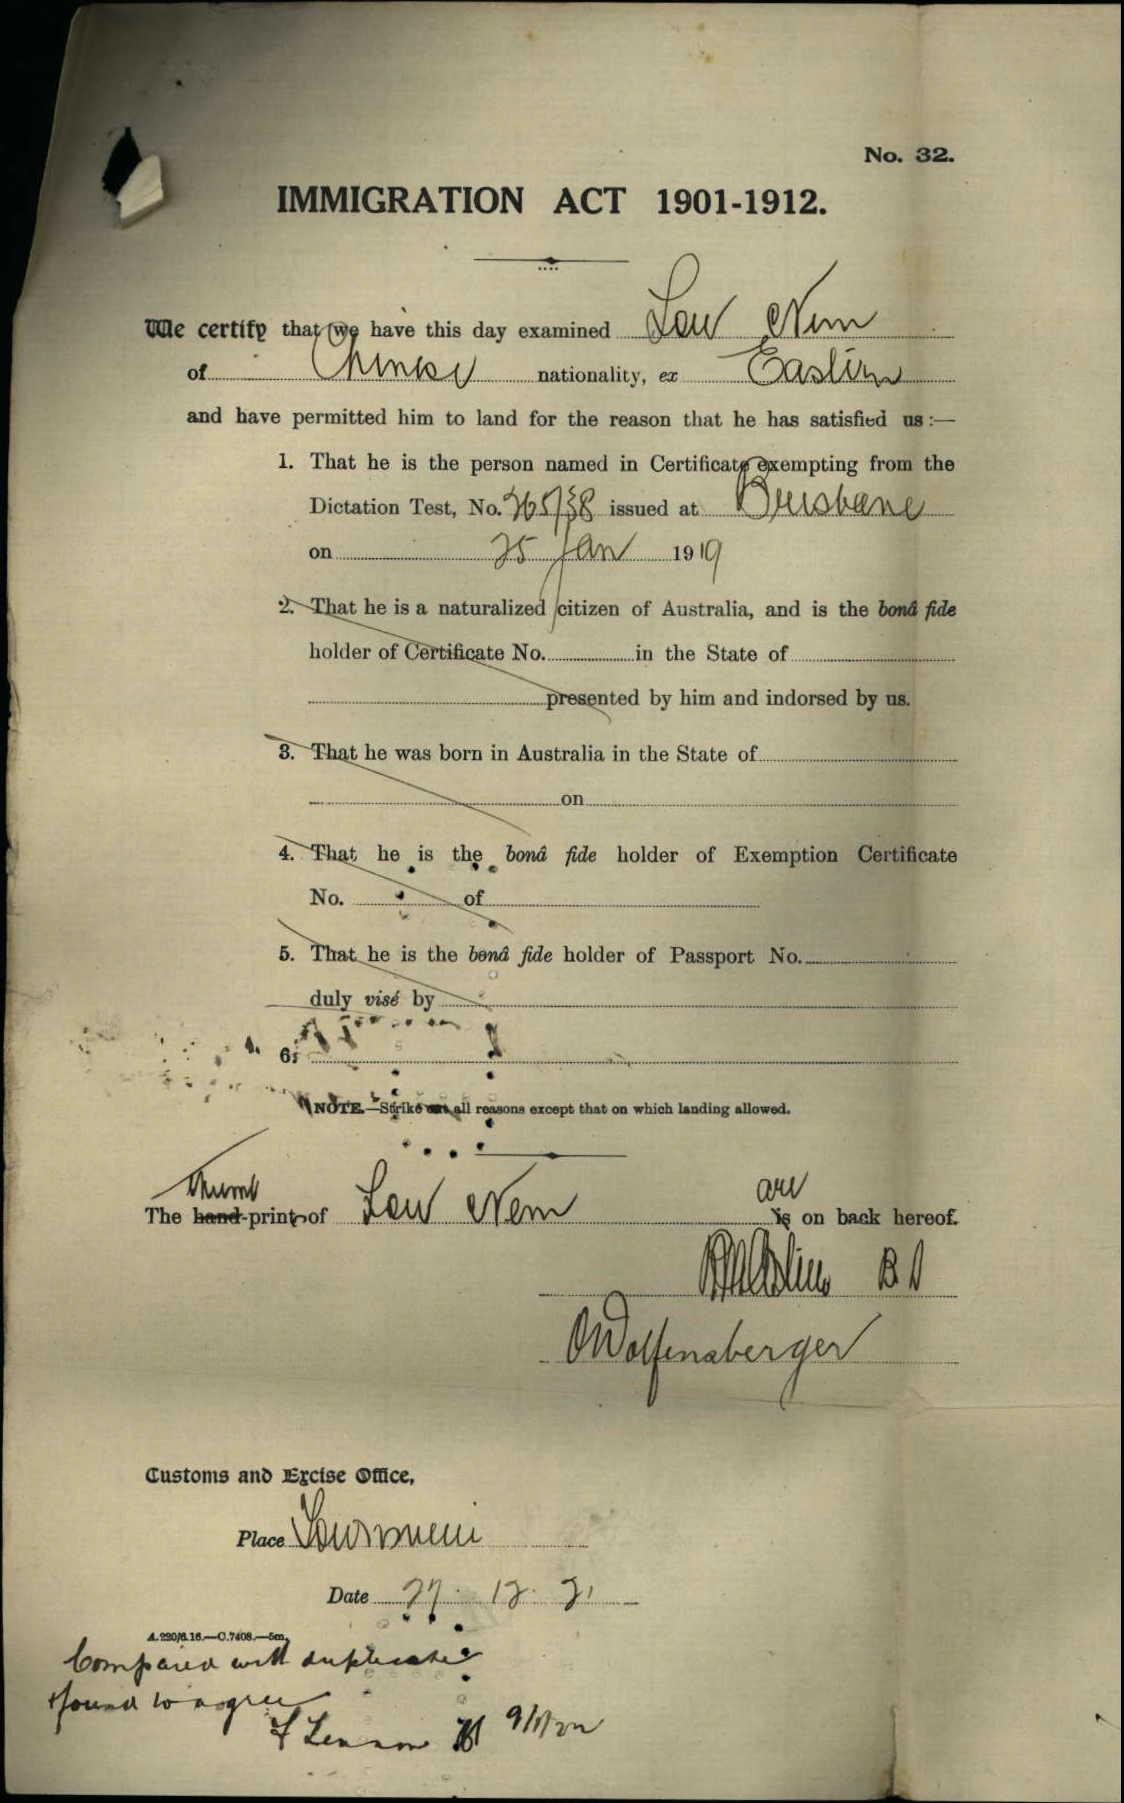 No. 32.
IMMIGRATION ACT 1901-1912.
We certify that we have this day examined Low Nem
of Chinese nationality, ex Eastern
and have permitted him to land for the reason that he has satisfied us :—
1. That he is the person named in Certificate exempting from the
Dictation Test, No. 265/38 issued at Brisbane
on 25 Jan 1919
2. That he is a naturalized citizen of Australia, and is the bonâ fide
holder of Certificate No. in the State of
presented by him and indorsed by us.
3. That he was born in Australia in the State of
on
4. That he is the bonâ fide holder of Exemption Certificate
No. of
5. That he is the bonâ fide holder of Passport No.
duly visé by
6.
NOTE.—Strike out all reasons except that on which landing allowed.
Thumb are
The hand-print of Low Nem is on back hereof.
O Wolfensberger
Customs and Excise Office,
Place Townsville
Date 27. 12. 21
A.220/6.16.—C.7408.—5m.
Compared with duplicate
& found to agree